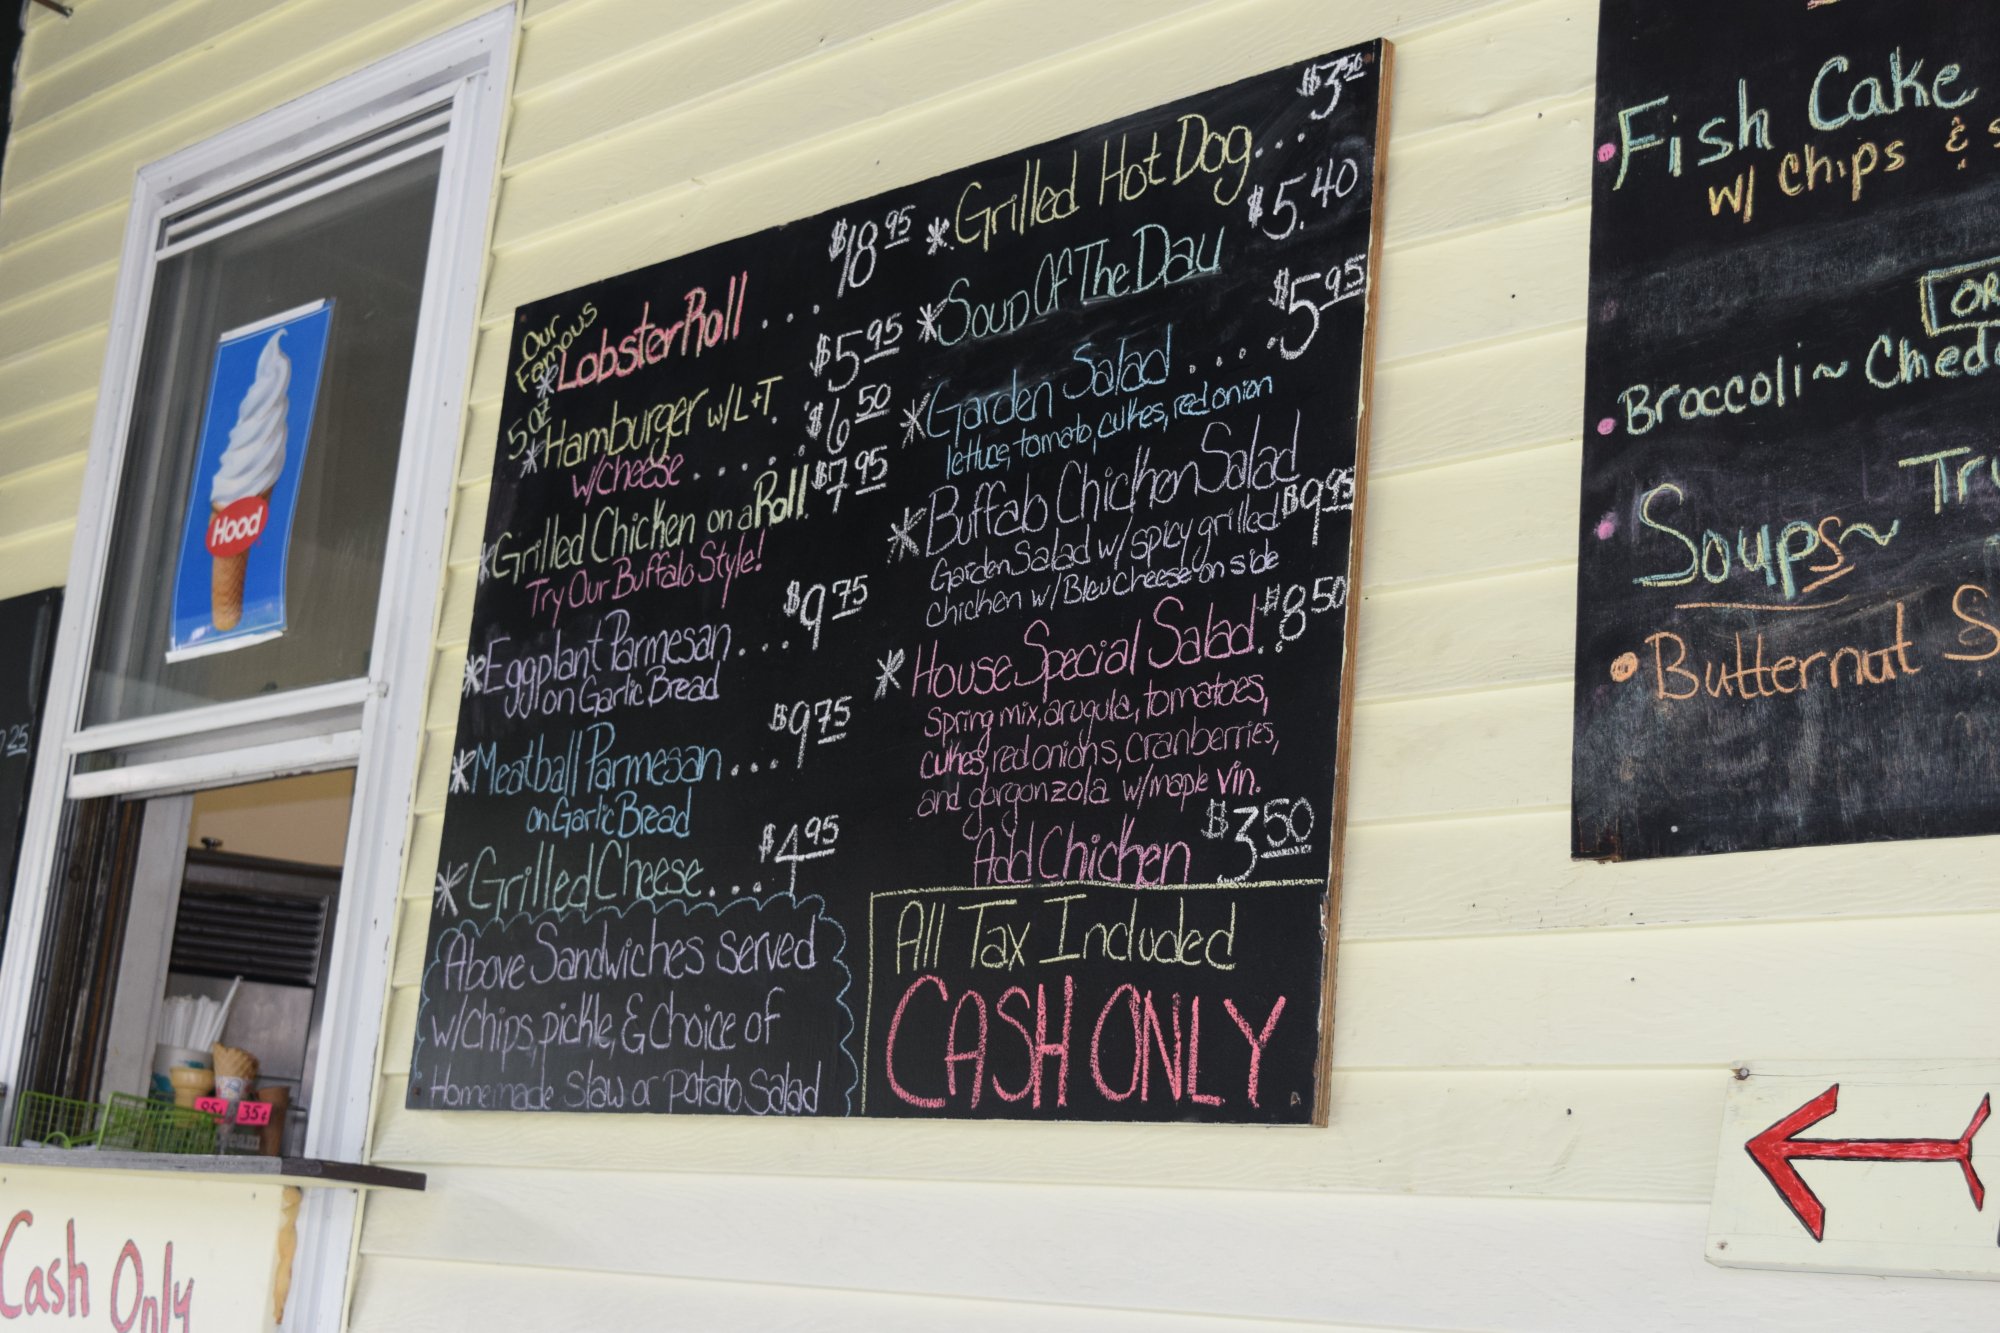 Our
Famous
*Lobster Roll . . . . $18.95
5oz
*Hamburger w/L+T. $5.95
w/cheese . . . . . . $6.50
*Grilled Chicken on a Roll. $7.95
Try Our Buffalo Style!
*Eggplant Parmesan . . . $9.75
on Garlic Bread
*Meatball Parmesan . . . $9.75
on Garlic Bread
*Grilled Cheese . . . $4.95
Above Sandwiches served
w/chips, pickle, & choice of
Homemade slaw or potato Salad
*Grilled Hot Dog . . . $3.50
*Soup Of The Day $5.40
*Garden Salad . . . . $5.95
lettuce, tomato, cukes, red onion
*Buffalo Chicken Salad
Garden Salad w/ spicy grilled $9.95
chicken w/ Bleu Cheese on side
*House Special Salad . . $8.50
Spring mix, arugula, tomatoes,
cukes, red onions, cranberries,
and gorgonzola w/maple vin.
Add Chicken $3.50
All Tax Included
CASH ONLY
Fish Cake
w/ chips &
OR
Broccoli~ Chedd
Soups~
Butternut S
Hood
25
95¢ 35¢
Cash Only